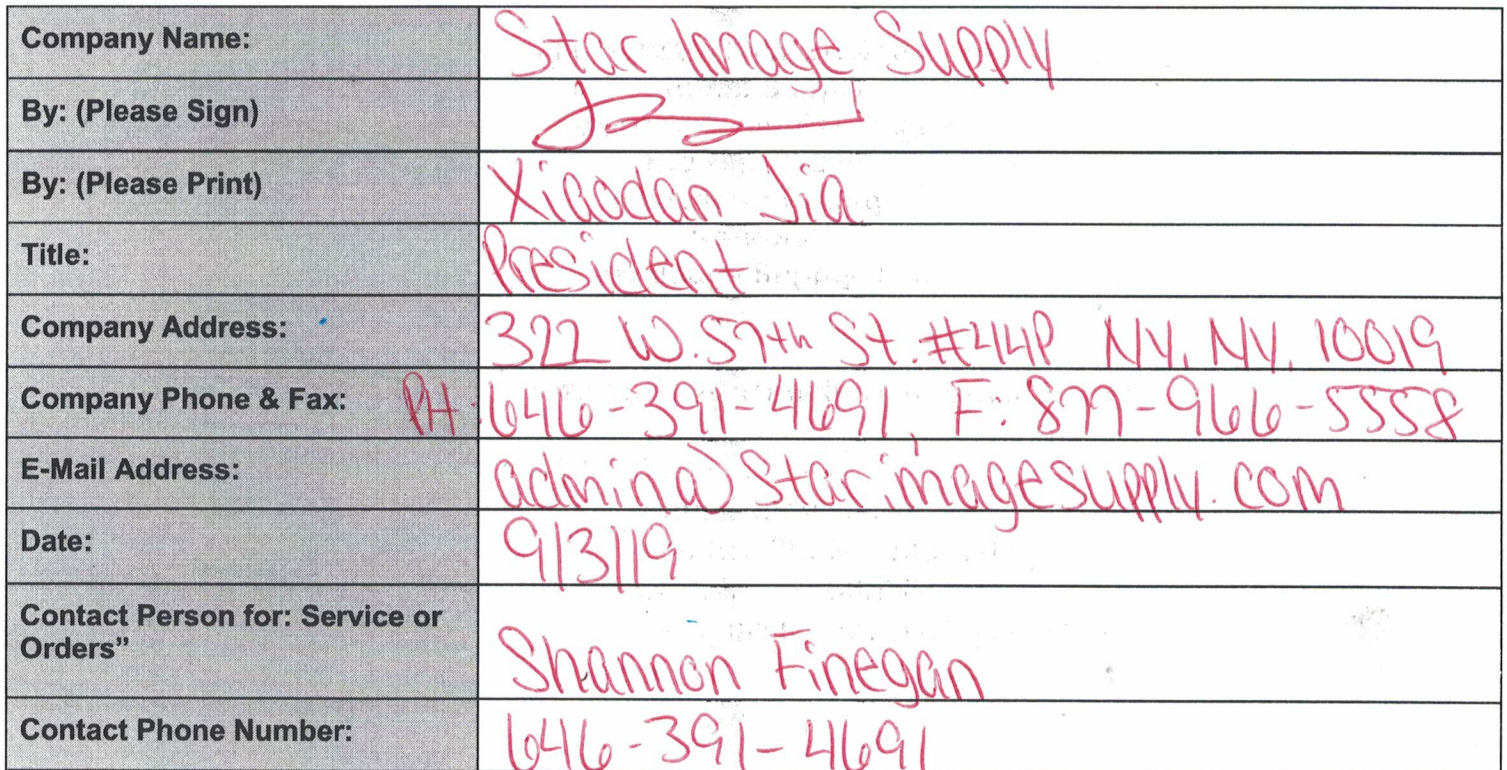 Company Name: Star Image Supply
By: (Please Sign)
By: (Please Print) Xiaodan Jia
Title: President
Company Address: 322 W. 57th St. #44P NY, NY, 10019
Company Phone & Fax: PH: 646-391-4691, F: 877-966-5558
E-Mail Address: admin@starimagesupply.com
Date: 9/3/19
Contact Person for: Service or
Orders” Shannon Finegan
Contact Phone Number: 646-391-4691